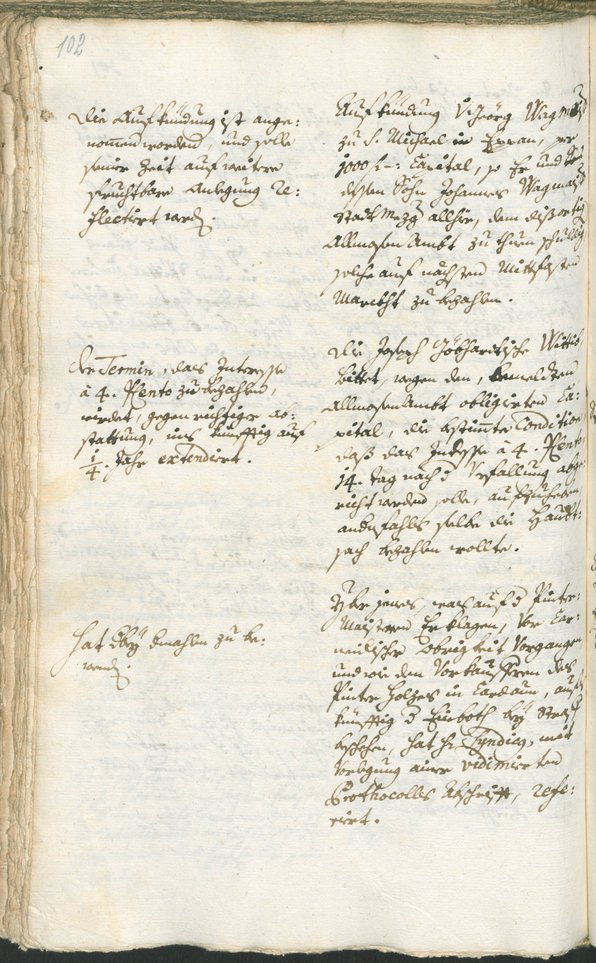 102
Die Aufkündung ist ange:
nommen worden, und solle
seiner Zeit auf weitere
fruchtbare Anlegung re:
flectiert werden.
Aufkündung Geörg Wagmaÿ
zu S. Michael in Eppan, per
1000 f -: Capital, so Er und
dessen Sohn Johannes Wagmaÿ
Stadt Mezg allhie, dem
Allmosen Ambt zu thuen schuldig
solche auf nächsten Mittfasten
Marckht zu bezahlen.
Der Termin, das Interesse
à 4. Pcento zu bezahlen,
wirdet, gegen richtiger ab:
stattung, ins künfftig auf
1/4. Jahr extendiert.
Die Joseph Wittib
bittet, wegen den, bemeldten
Allmosen Ambt obligierten Ca:
pital, die bestimte Condition,
daß das Interesse à 4. Pcento
14. tag nach Verfallung abge:
richt werden solle, aufzuheben,
andefahls selbe die Haubt:
sach bezahlen wollte.
Hat beÿ bemahlen zu be:
wenden.
Über jenes, was auf Pinter:
Maistern beklagen, vor Car:
neidischer Obrigkeit Vorgangen
und wie den Vorkauffern des
Pinter Holzes in Cardaun, auf
künfftig Einboth beÿ Straff
beschehen, hat H: Syndicus, mit
Vorlegung ainer vidimierten
Prothocolls Abschrifft, refe:
riert.